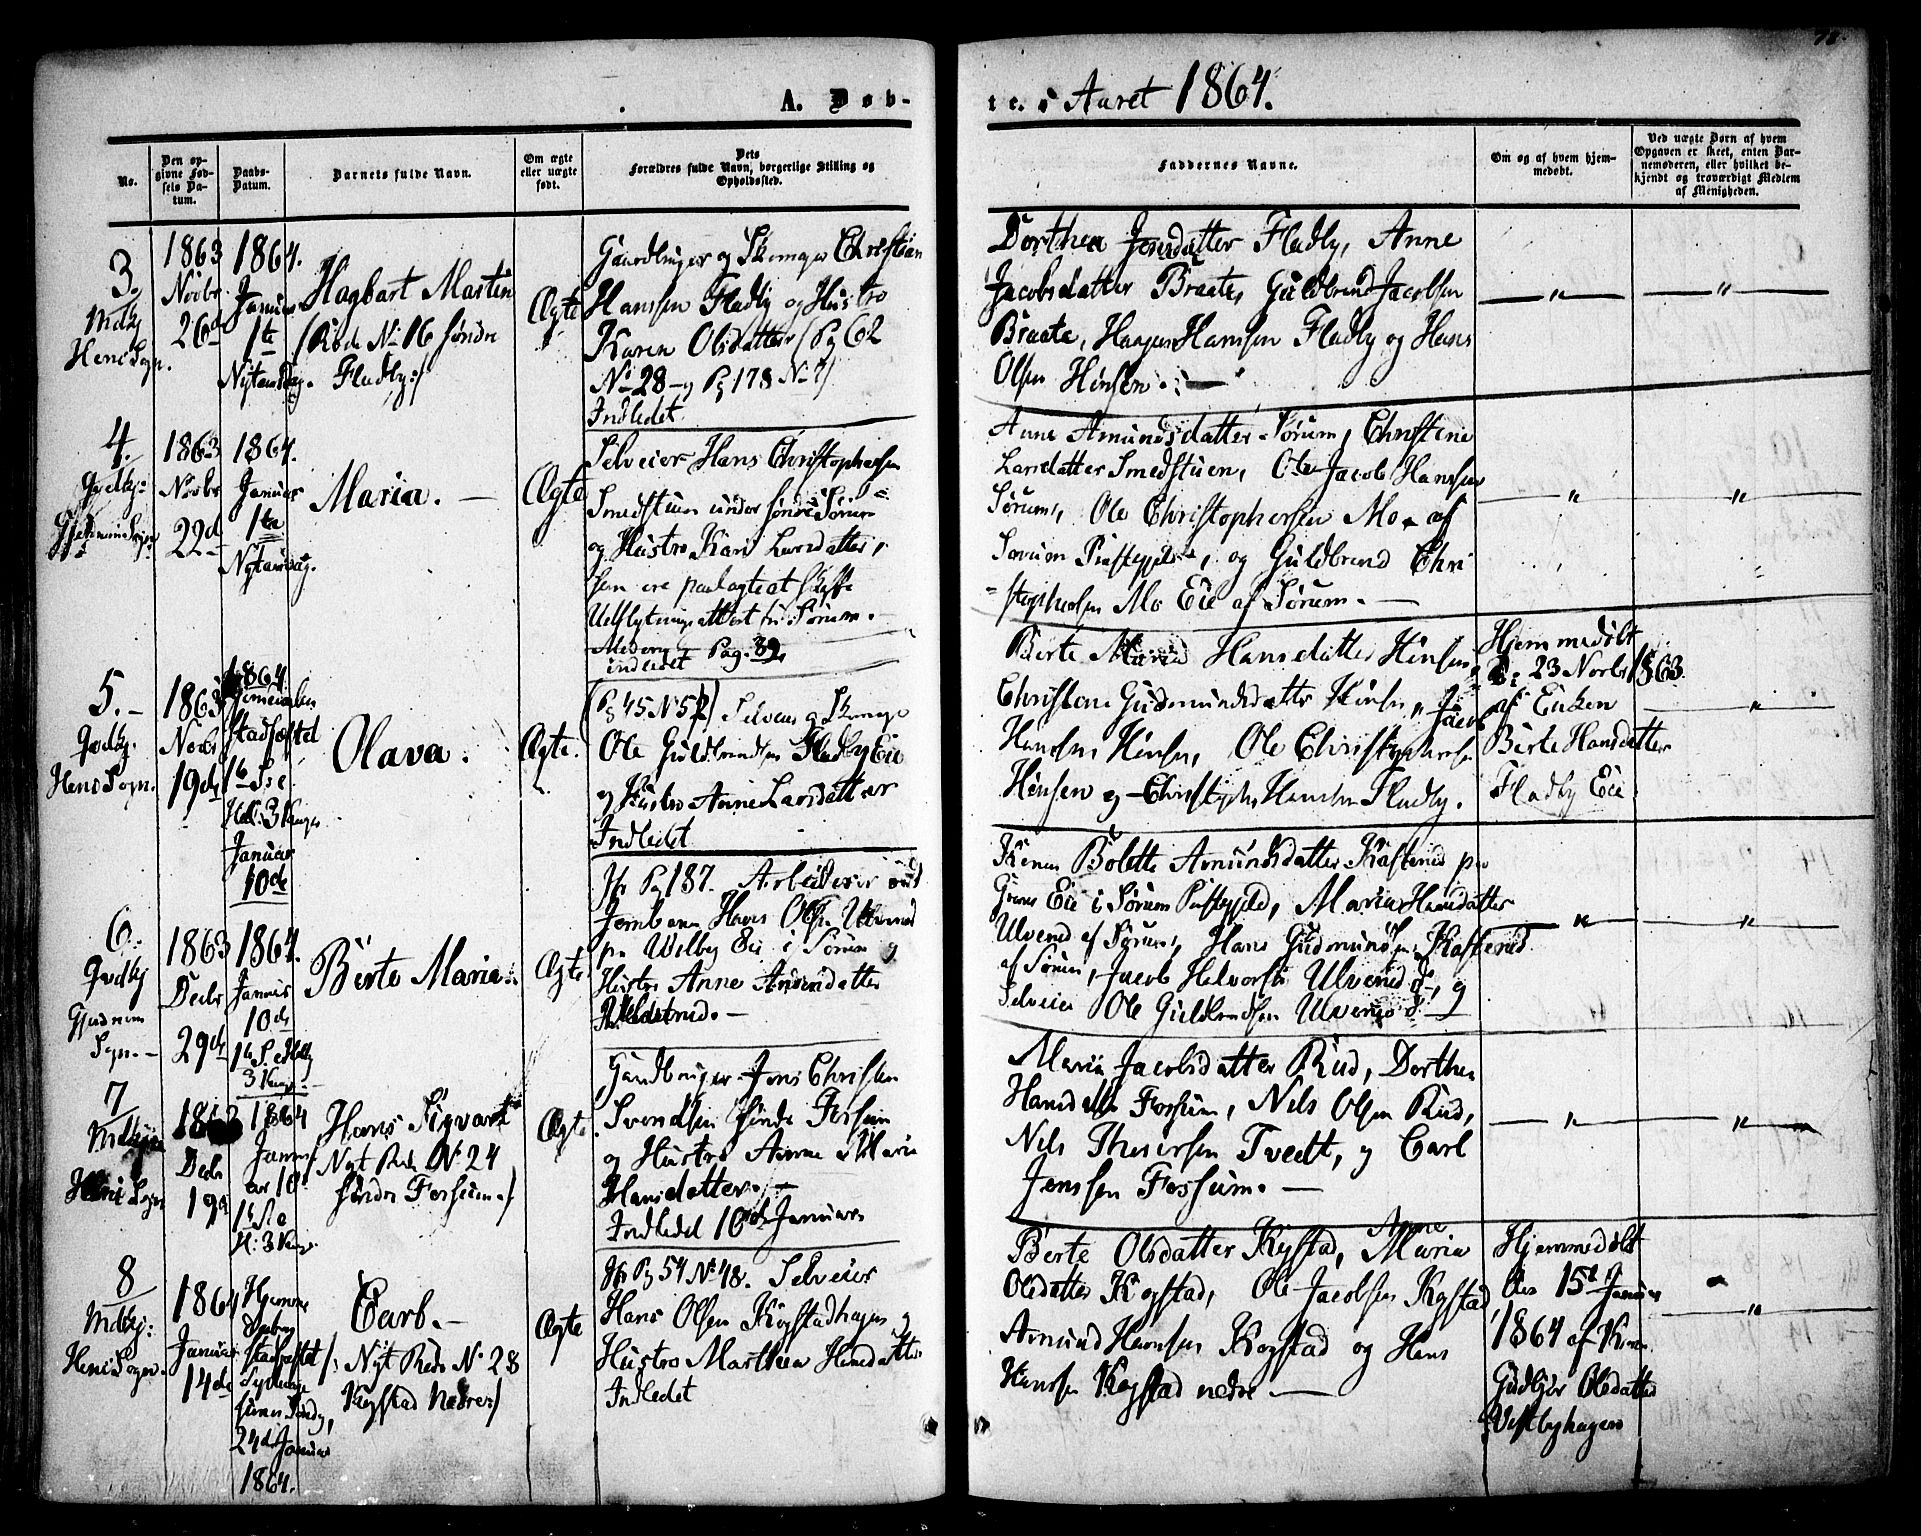 A. Døb-
te i Aaret 1864.
No.
Den op-
givne Fød-
sels Da-
tum.
Daabs-
Datum.
Barnets fulde Navn.
Om ægte
eller uægte
født.
Dets
Forældres fulde Navn, borgerlige Stilling og
Opholdssted.
Faddernes Navne.
Om og af hvem hjem-
medøbt.
Ved uægte Børn af hvem
Opgaven er skeet, enten Bar-
nemoderen, eller hvilket be-
kjendt og troværdigt Medlem
af Menigheden.
3.
Mdkj
Heni Sogn.
1863
Novbr
26d
1864.
Januar
1te
Nytaarsdag.
Hagbart Martin
(Røde No 16 søndre
Fladby:/
Ægte
Gaardbruger og Skomager Christian
Hanssen Fladby og Hustro
Karen Olsdatter (Pg 62
No 28 og Pg 178 No 7)
Indledet
Dorthea Jensdatter Fladby, Anne
Jacobsdatter Braate, Guldbrand Jacobsen
Braate, Haagen Hanssen Fladby og Hans
Olsen Hønsen.
—"—
—"—
4.
Qvdkj:
Gjerdrum Sogn
1863
Novbr
22d
1864.
Januar
1te
Nytaarsdag.
Maria.
Ægte
Selveier Hans Christophersen
Smedstuen under søndre Sørum
og Hustro Kari Larsdatter,
som ere paalagte at skaffe
Udflytningsattest fra Sørum.
indledet Pag. 89
Anne Amundsdatter Sørum, Christine
Larsdatter Smedstuen, Ole Jacob Hanssen
Sørum, Ole Christophersen Mo af
Sørum Præstegjeld, og Guldbrand Chri
stophersen Mo Eie af Sørum.
—"—
—"—
5.
Qvdkj.
Heni Sogn.
1863
Novbr
19de
1864
stadfæstet
1te S. e
Hell: 3 Konger
Januar
10de
Olava.
Ægte.
(Pg 45 No 52) Selveier og Skomager
Ole Guldbrandsen Fladby Eie
og Hustro Anne Larsdatter
Indledet
Berte Maria Hansdatter Hønsen,
Christine Gudmundsdatter Hønsen, Jacob
Hanssen Hønsen, Ole Christophersen
Hønsen og Christopher Hanssen Fladby.
Hjemmedøbt
D: 23 Novbr 1863.
af Enken
Berte Hansdatter
Fladby Eie
—"—
6.
Qvdkj
Gjerdrum
Sogn.
1863
Decbr
29de
1864.
Januar
10de
1te S. e Hellig
3 Kong.
Berte Maria.
Ægte
Jfr Pg 187. Arbeider ved
Jernbanen Hans Olsen Ulverud
paa Wilberg Eie i Sørum og
Hustro Anne Amundsdatter
Indledet.
Karen Bolette Amundsdatter Kasterud paa
Eie i Sørum Præstegjeld, Maria Hansdatter
Ulverud af Sørum, Hans Gudmundsen Kasterud
af Sørum, Jacob Halvorsen Ulverud og
Selveier Ole Guldbrandsen Ulverud.
—"—
—"—
7
Mdkjøn
Heni Sogn
1863
Decbr
19de
1864
Janu-
ar 10de
1te S. e
H: 3 Kong.
Hans Sigvart
(Nyt Røde No 24
søndre Forsum.)
Ægte
Gaardbruger Jens Christian
Svendsen søndre Forsum
og Hustro Anne Maria
Hansdatter.
Indledet 10de Januar
Maria Jacobsdatter Rud, Dorthea
Hansdatter Forsum, Nils Olsen Rud,
Nils Thorersen Tvedt, og Carl
Jenssen Forsum.
—"—
—"—
8
Mdkj:
Heni Sogn.
1864
Januar
14de
Hjemme
daaben
stadfæstet
Septuage
sima Søndag,
24de Januar
1864.
Carl.
/: Nyt Røde No 28
Kogstad Nedre:/
Ægte
Jfr Pg 54 No 48. Selveier
Hans Olsen Kogstadhagen og
Hustro Marthea Hansdatter
Indledet
Berte Olsdatter Kogstad, Anne Maria
Olsdatter Kogstad, Ole Jacobsen Kogstad,
Amund Hanssen Kogstad og Hans
Hanssen Kogstad nedre
Hjemmedøbt
den 15de Januar
1864 af Kone
Gudbjør Olsdatter
Vestbyhagen
—"—